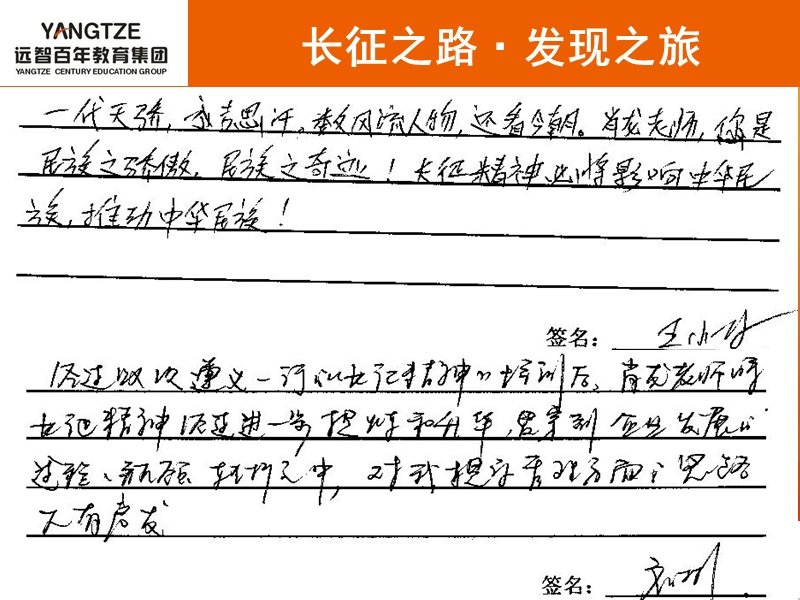 YANGTZE
远智百年教育集团
YANGTZE CENTURY EDUCATION GROUP
长征之路·发现之旅
一代天骄，成吉思汗。数风流人物，还看今朝。肖龙老师，你是
民族之骄傲，民族之奇迹！长征精神必将影响中华民
族，推动中华民族！
签名：王小
经过此次遵义一行《长征精神》培训后，肖龙老师将
长征精神经过进一步提炼和升华，贯穿到企业发展的
过程、之中，对我提升管理方面的思路
大有启发
签名：